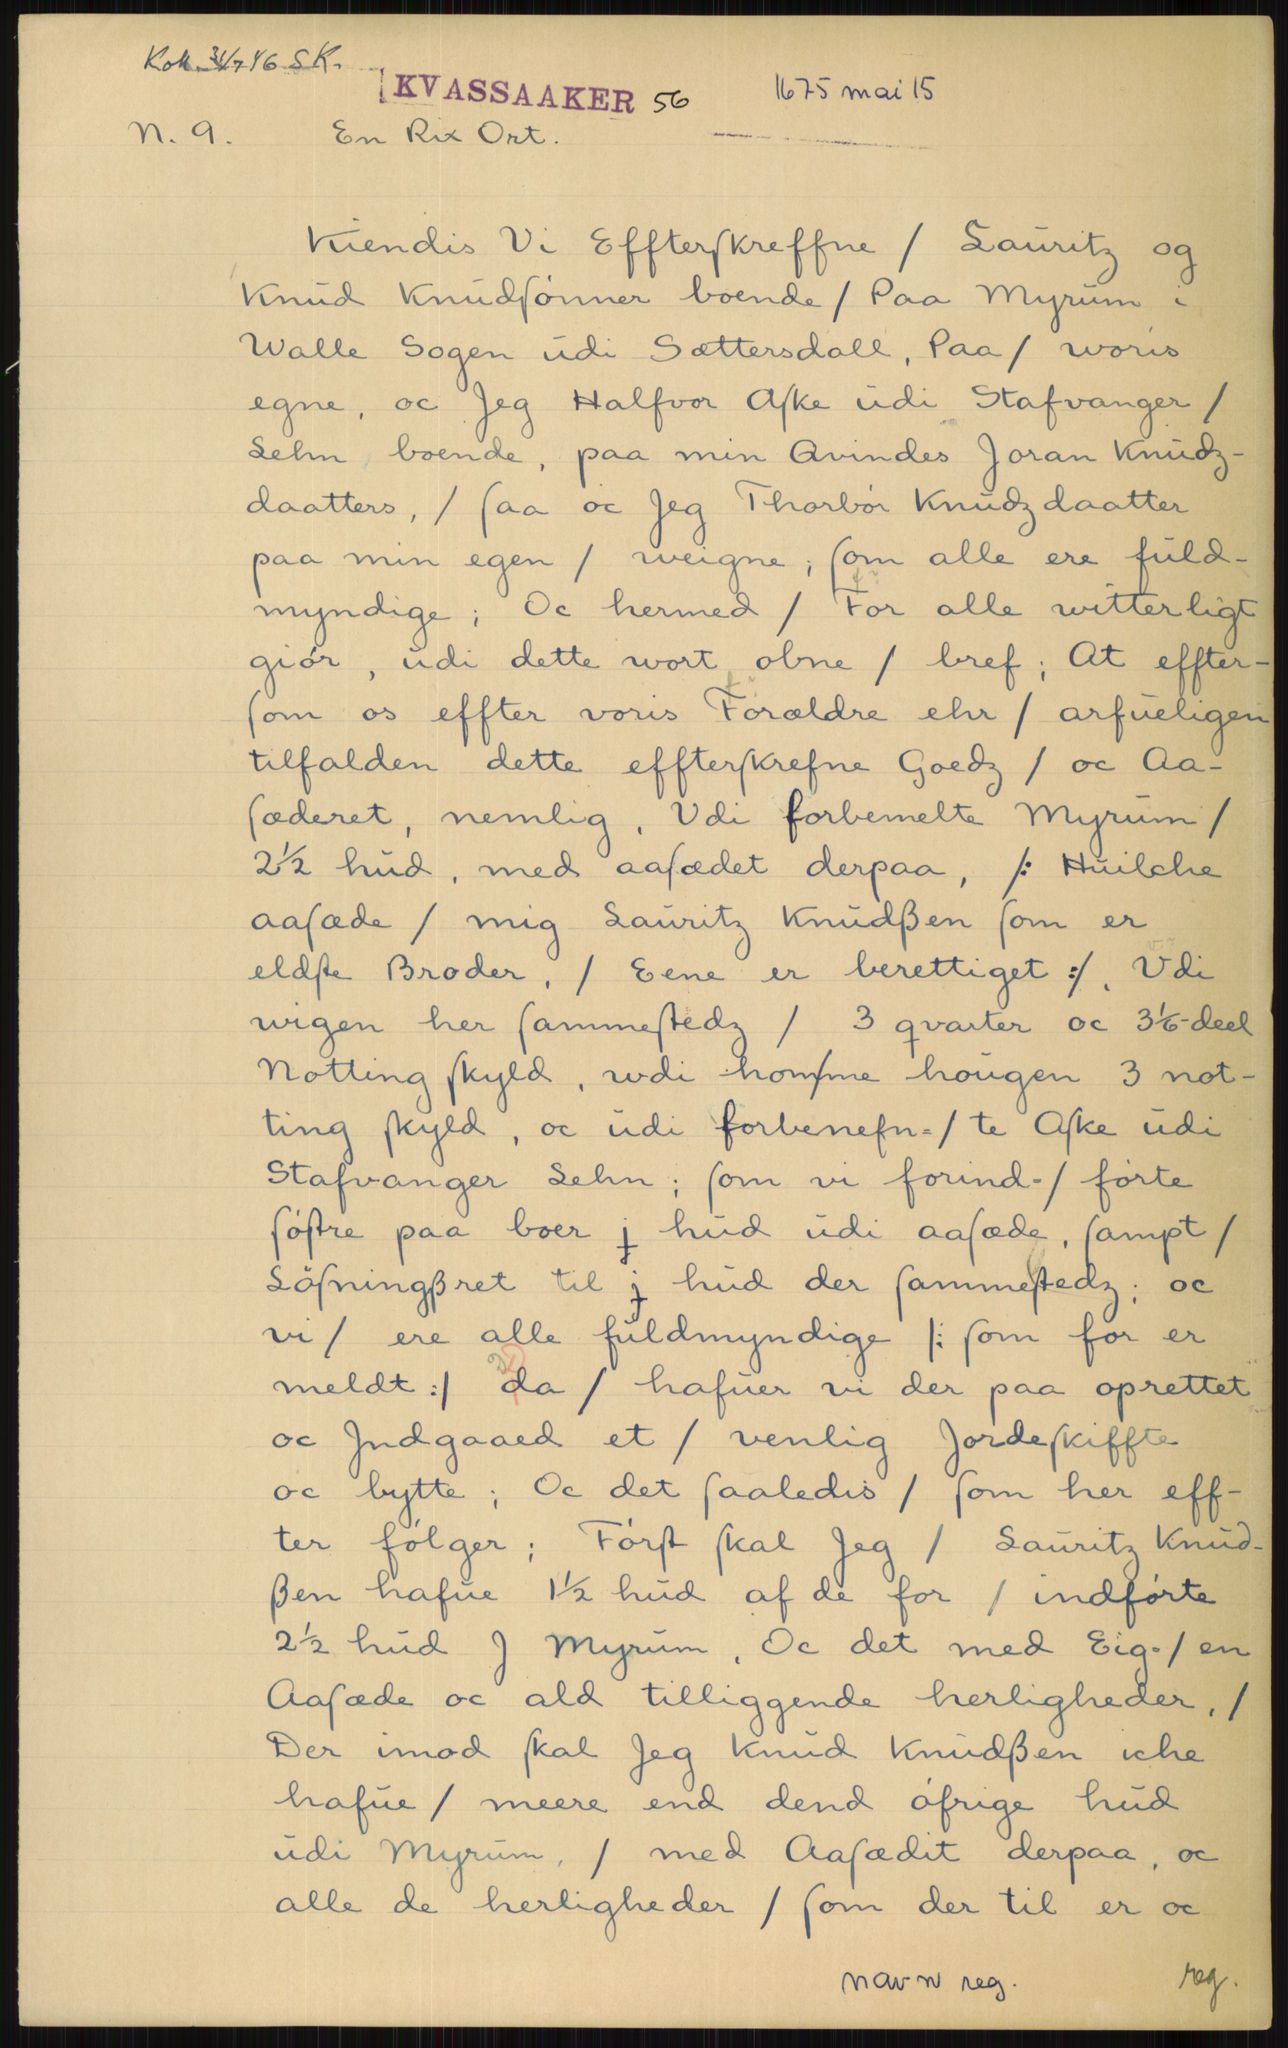 Koll. 31/7 46 SK.
KVASSAAKER 56
1675 mai 15
N. 9. En Rix Ort.
Kiendis Vi Effterſkreffne / Lauritz og
Knud Knudſønner boende / Paa Myrum i
Walle Sogen udi Sættersdall, Paa / woris
egne, oc Jeg Halfvor Aſke udi Stafvanger /
Lehn boende, paa min Qvindes Joran Knudz-
daatters, / ſaa oc Jeg Thorbör Knudzdaatter
paa min egen / weigne; ſom alle ere fuld-
myndige; Oc hermed / For alle witterligt
giör, udi dette wort obne / bref; At effter-
ſom os effter voris Forældre ehr / arfueligen
tilfalden dette effterſkrefne Goedz / oc Aa-
ſæderet, nemlig, Vdi forbemelte Myrum /
2½ hud, med aaſædet derpaa, /: Huilche
aaſæde / mig Lauritz Knudßen ſom er
eldſte Broder, / Eene er berettiget :/, Vdi
wigen her ſammeſtedz / 3 qvarter oc 3⅙-deel
Notting ſkyld, udi hom/me hougen 3 not-
ting ſkyld, oc udi forbenefn=/te Aſke udi
Stafvanger Lehn; ſom vi forind-/förte
ſöſtre paa boer j hud udi aaſæde, ſampt /
Löſningßret til j hud der ſammeſtedz; oc
vi / ere alle fuldmyndige /: ſom for er
meldt :/ da / hafuer vi der paa oprettet
oc Jndgaaed et / venlig Jordeſkiffte
oc bytte; Oc det ſaaledis / ſom her eff-
ter fölger; Förſt ſkal Jeg / Lauritz Knud-
ßen hafue 1½ hud af de for / indförte
2½ hud J Myrum, Oc det med Eig=/en
Aaſæde oc ald tilliggende herligheder, /
Der imod ſkal Jeg Knud Knudßen iche
hafue / meere end dend öfrige hud
udi Myrum, / med Aaſædit derpaa, oc
alle de herligheder / ſom der til er oc
navn reg. reg.